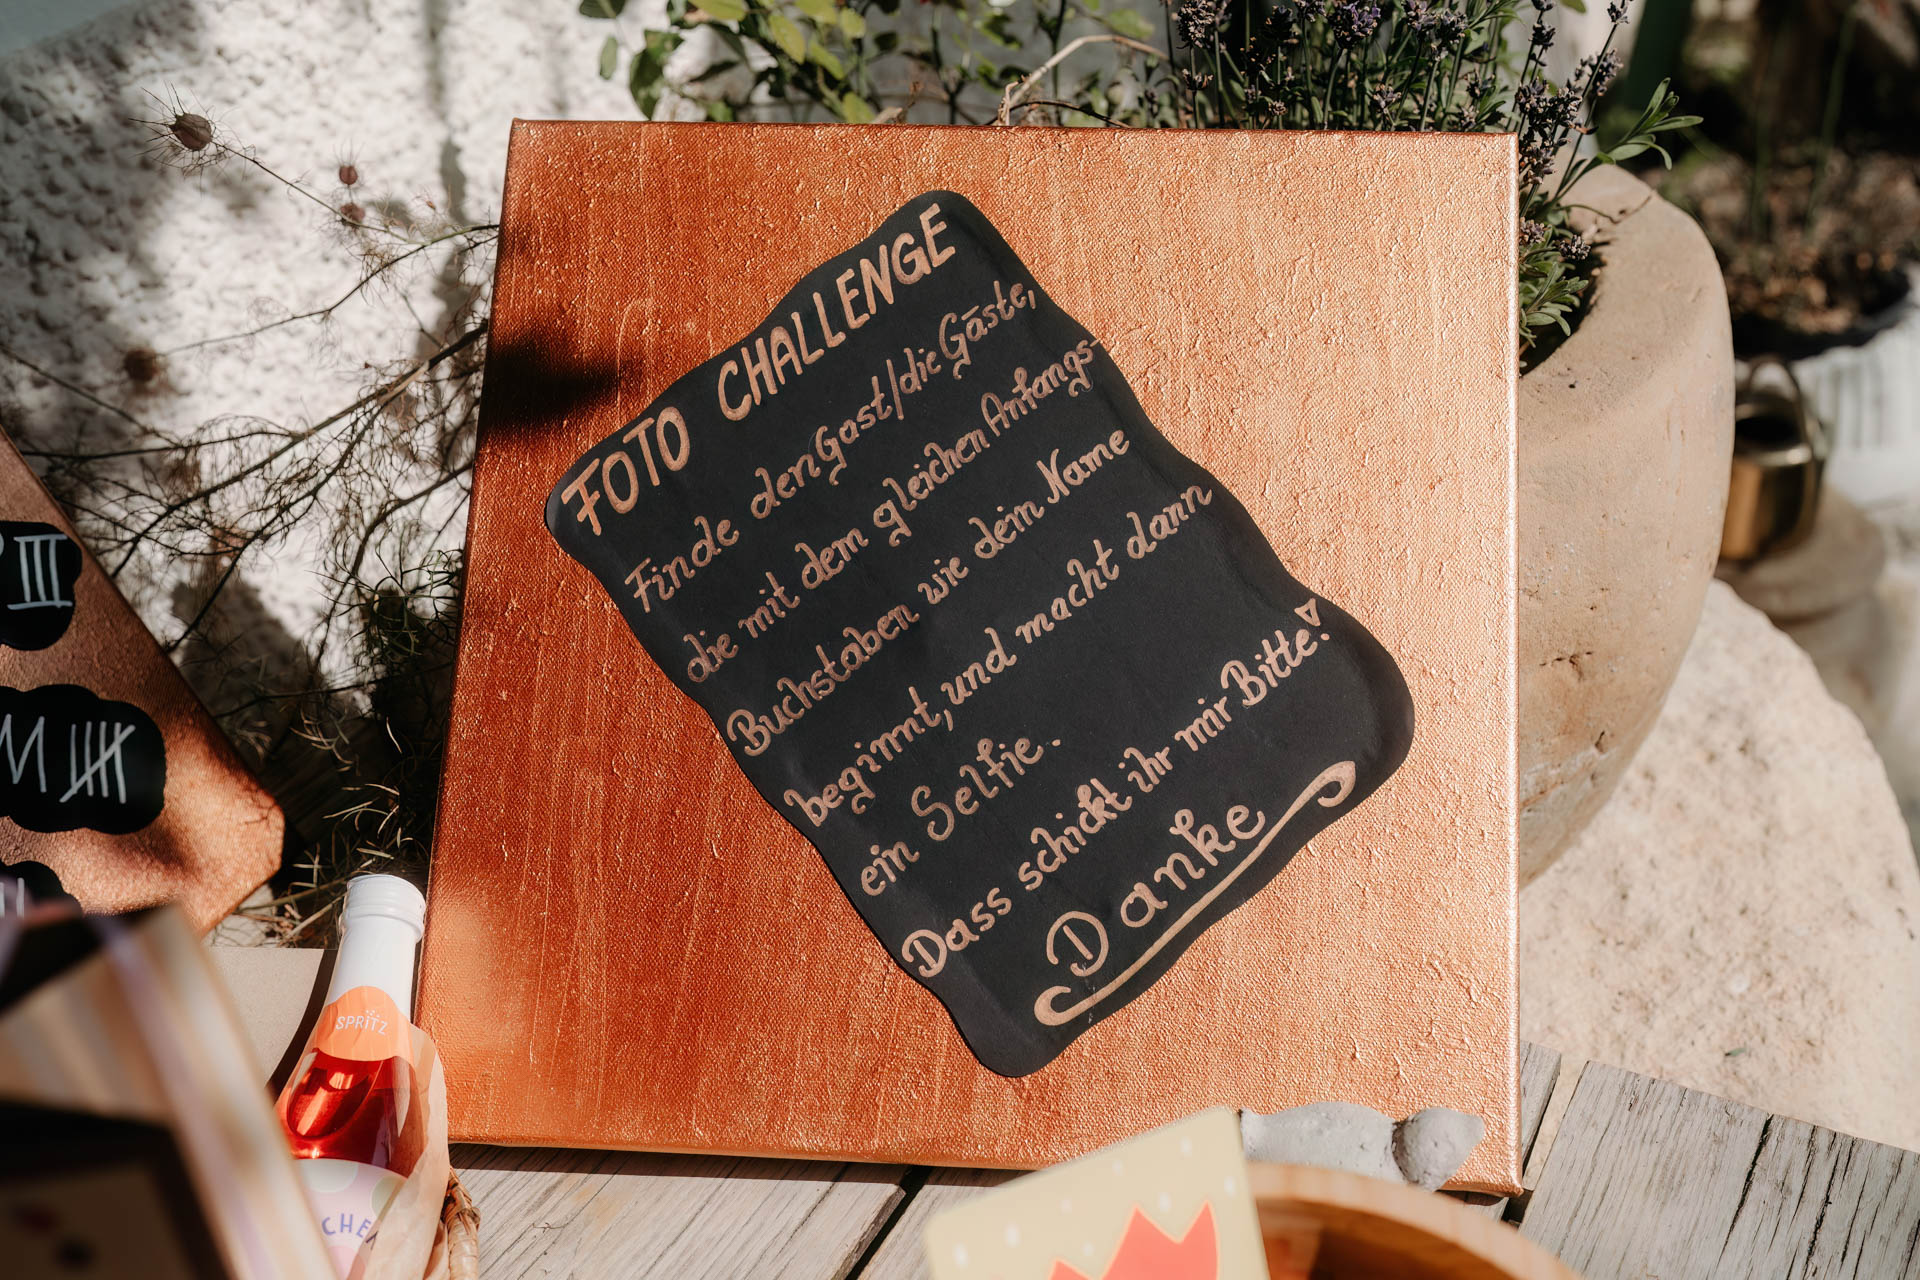 FOTO CHALLENGE
Finde den Gast/die Gäste,
die mit dem gleichen Anfangs-
Buchstaben wie dein Name
beginnt, und macht dann
ein Selfie.
Dass schickt ihr mir Bitte!
Danke
III
M
SPRITZ
CHE